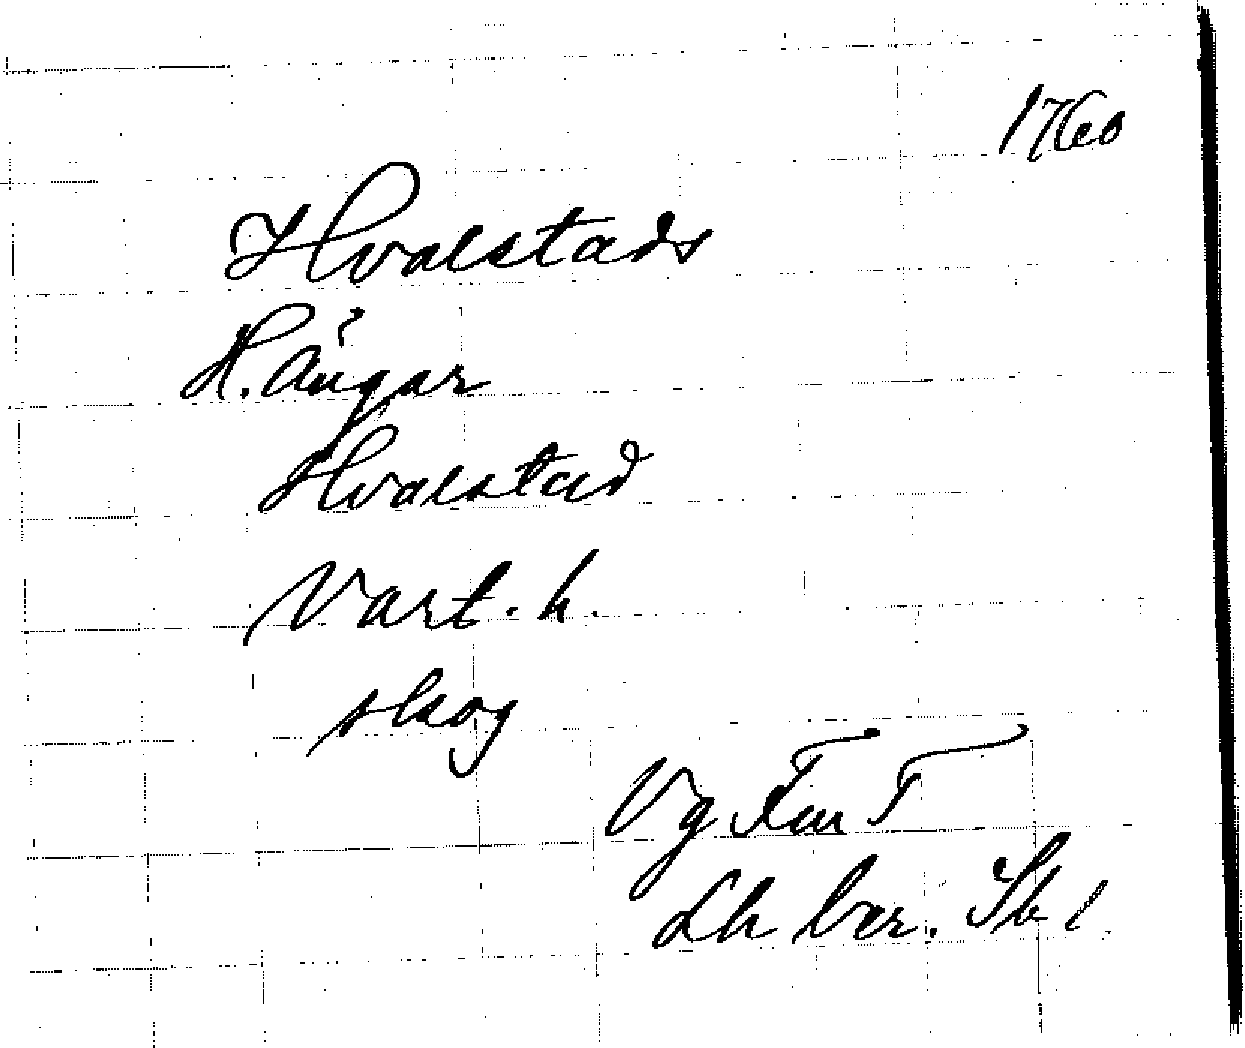 1760
Hvalstads
H. Ängar
Hvalstad
Vart. h.
skog
Vg Fun T
Lh ber. Sk 1